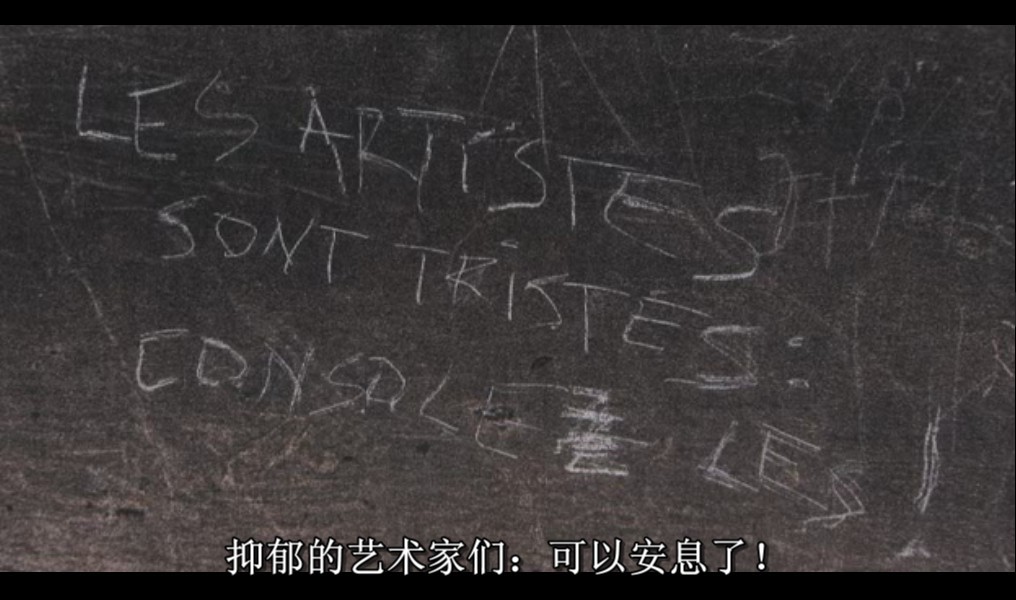 LES ARTiSTES
SONT TRiSTES :
CONSOLEZ LES !
抑郁的艺术家们：可以安息了！